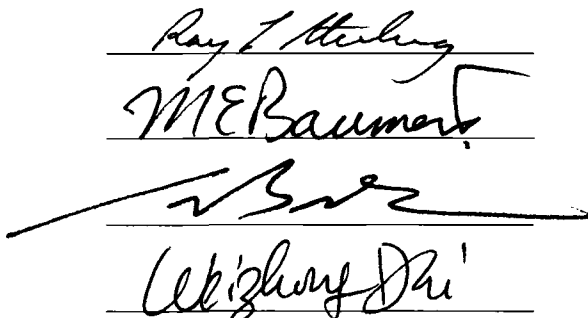 Ray L Sterling
MEBaumert
Weizhong Dai